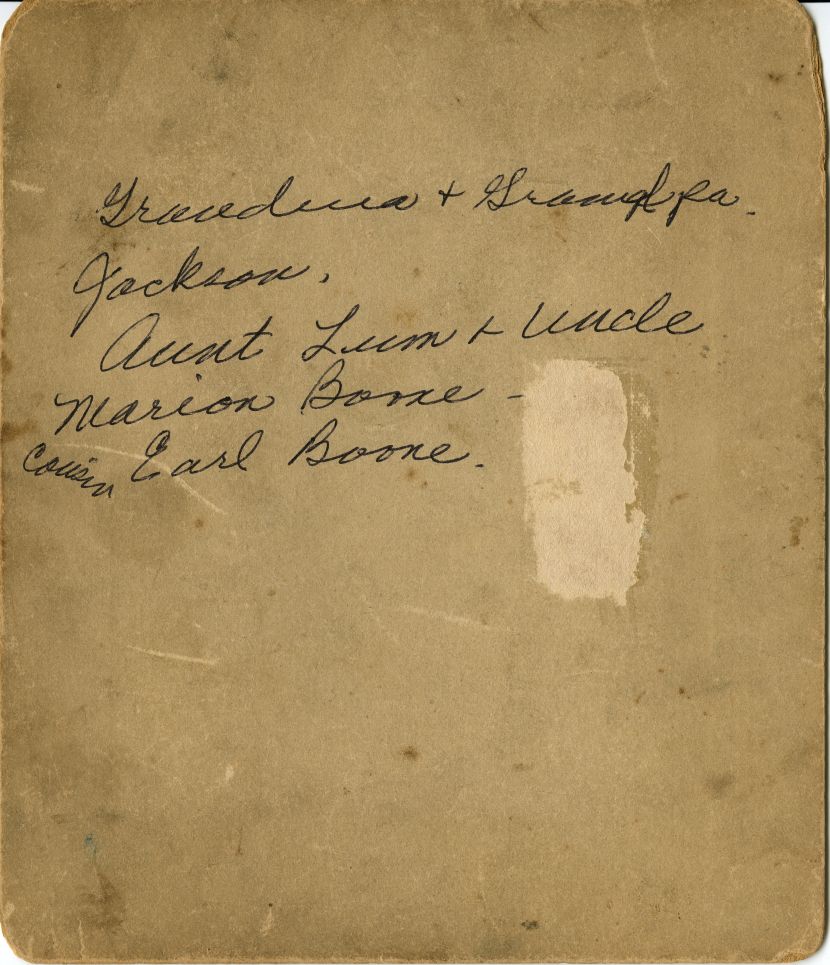 Grandma + Grandpa.
Jackson.
Aunt Lum + Uncle
Marion Boone -
Cousin Earl Boone.